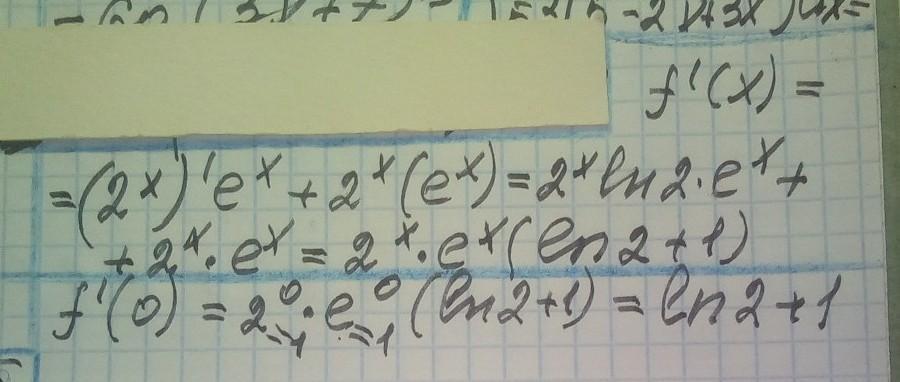 f'(x) =
=(2ˣ)'eˣ + 2ˣ(eˣ) = 2ˣ ln2·eˣ +
+ 2ˣ·eˣ = 2ˣ·eˣ(ln2+1)
f'(0) = 2⁰·e⁰(ln2+1) = ln2+1
=1 =1